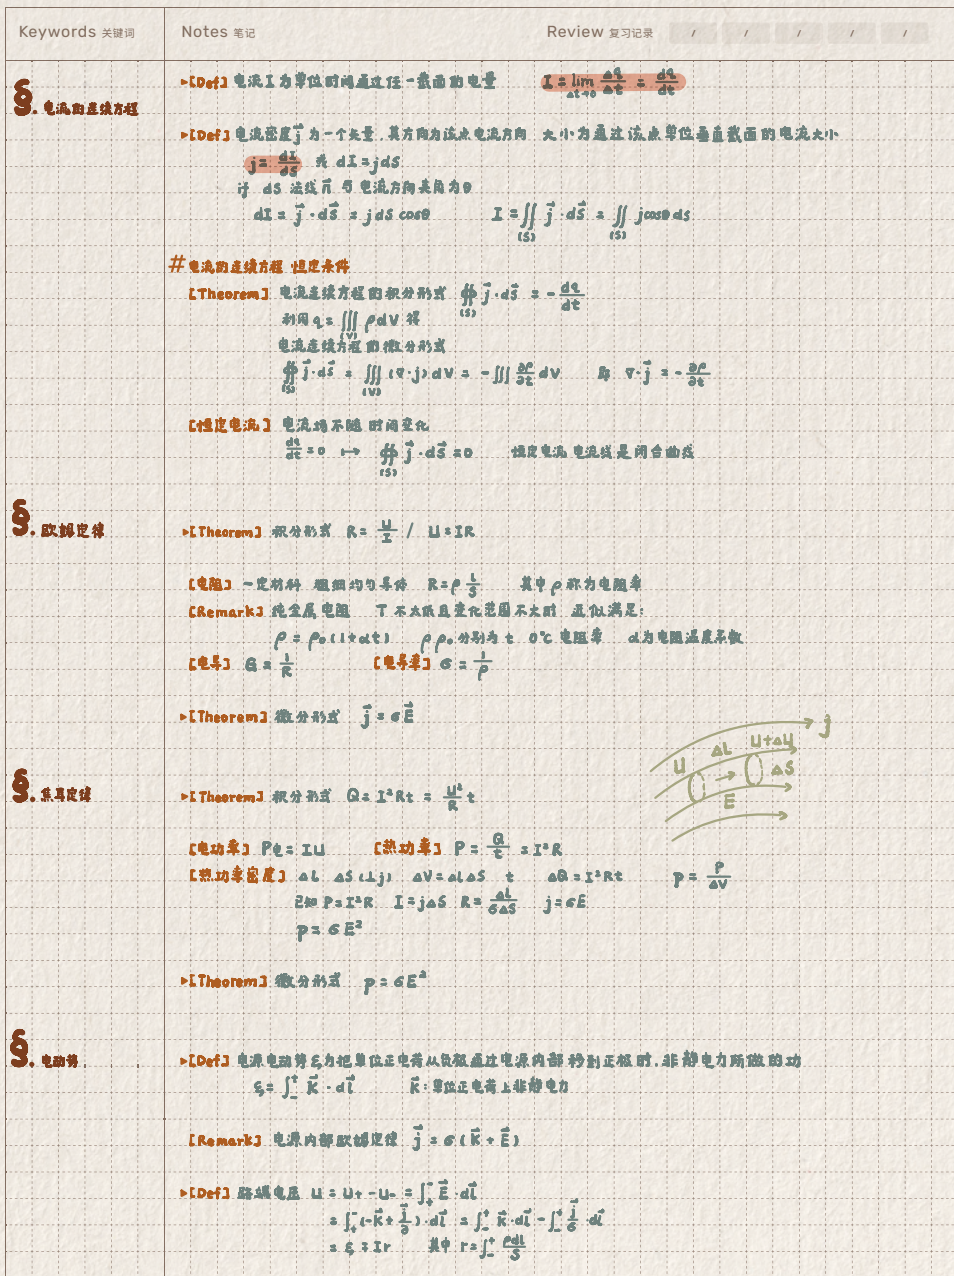 Keywords 关键词 Notes 笔记 Review 复习记录 / / / / /
§. 电流的连续方程
▸[Def] 电流 I 为单位时间通过任一截面的电量 I = lim_{Δt→0} Δq/Δt = dq/dt
▸[Def] 电流密度 j⃗ 为一个矢量，其方向为该点电流方向 大小为通过该点单位垂直截面的电流大小
j = dI/dS 或 dI = jdS
计 dS 法线 n⃗ 与电流方向夹角为θ
dI = j⃗·dS⃗ = jdS cosθ I = ∬_(S) j⃗·dS⃗ = ∬_(S) jcosθ ds
# 电流的连续方程 恒定条件
[Theorem] 电流连续方程的积分形式 ∯_(S) j⃗·dS⃗ = -dq/dt
利用 q = ∭_(V) ρdV 得
电流连续方程的微分形式
∯_(S) j⃗·dS⃗ = ∭_(V) (∇·j)dV = -∭ ∂ρ/∂t dV 即 ∇·j⃗ = -∂ρ/∂t
[恒定电流] 电流场不随时间变化
dq/dt = 0 ↦ ∯_(S) j⃗·dS⃗ = 0 恒定电流 电流线是闭合曲线
§. 欧姆定律
▸[Theorem] 积分形式 R = U/I / U = IR
[电阻] 一定材料 粗细均匀导体 R = ρ l/S 其中ρ称为电阻率
[Remark] 纯金属电阻 T 不太低且变化范围不大时 近似满足:
ρ = ρ₀(1+αt) ρ ρ₀分别为 t 0℃ 电阻率 α为电阻温度系数
[电导] G = 1/R [电导率] σ = 1/ρ
▸[Theorem] 微分形式 j⃗ = σE⃗
j
U ΔL U+ΔU
ΔS
E
§. 焦耳定律
▸[Theorem] 积分形式 Q = I²Rt = U²/R t
[电功率] P电 = IU [热功率] P = Q/t = I²R
[热功率密度] ΔL ΔS(⊥j) ΔV = ΔLΔS t ΔQ = I²Rt p = P/ΔV
已知 P = I²R I = jΔS R = ΔL/σΔS j = σE
p = σE²
▸[Theorem] 微分形式 p = σE²
§. 电动势
▸[Def] 电源电动势 ξ 为把单位正电荷从负极通过电源内部移到正极时，非静电力所做的功
ξ = ∫₋⁺ K⃗·dl⃗ K⃗: 单位正电荷上非静电力
[Remark] 电源内部欧姆定律 j⃗ = σ(K⃗+E⃗)
▸[Def] 路端电压 U = U₊-U₋ = ∫₊⁻ E⃗·dl⃗
= ∫₊⁻(-K⃗+j⃗/σ)·dl⃗ = ∫₋⁺ K⃗·dl⃗ - ∫₋⁺ j⃗/σ·dl⃗
= ξ ∓ Ir 其中 r = ∫₋⁺ ρdl/S